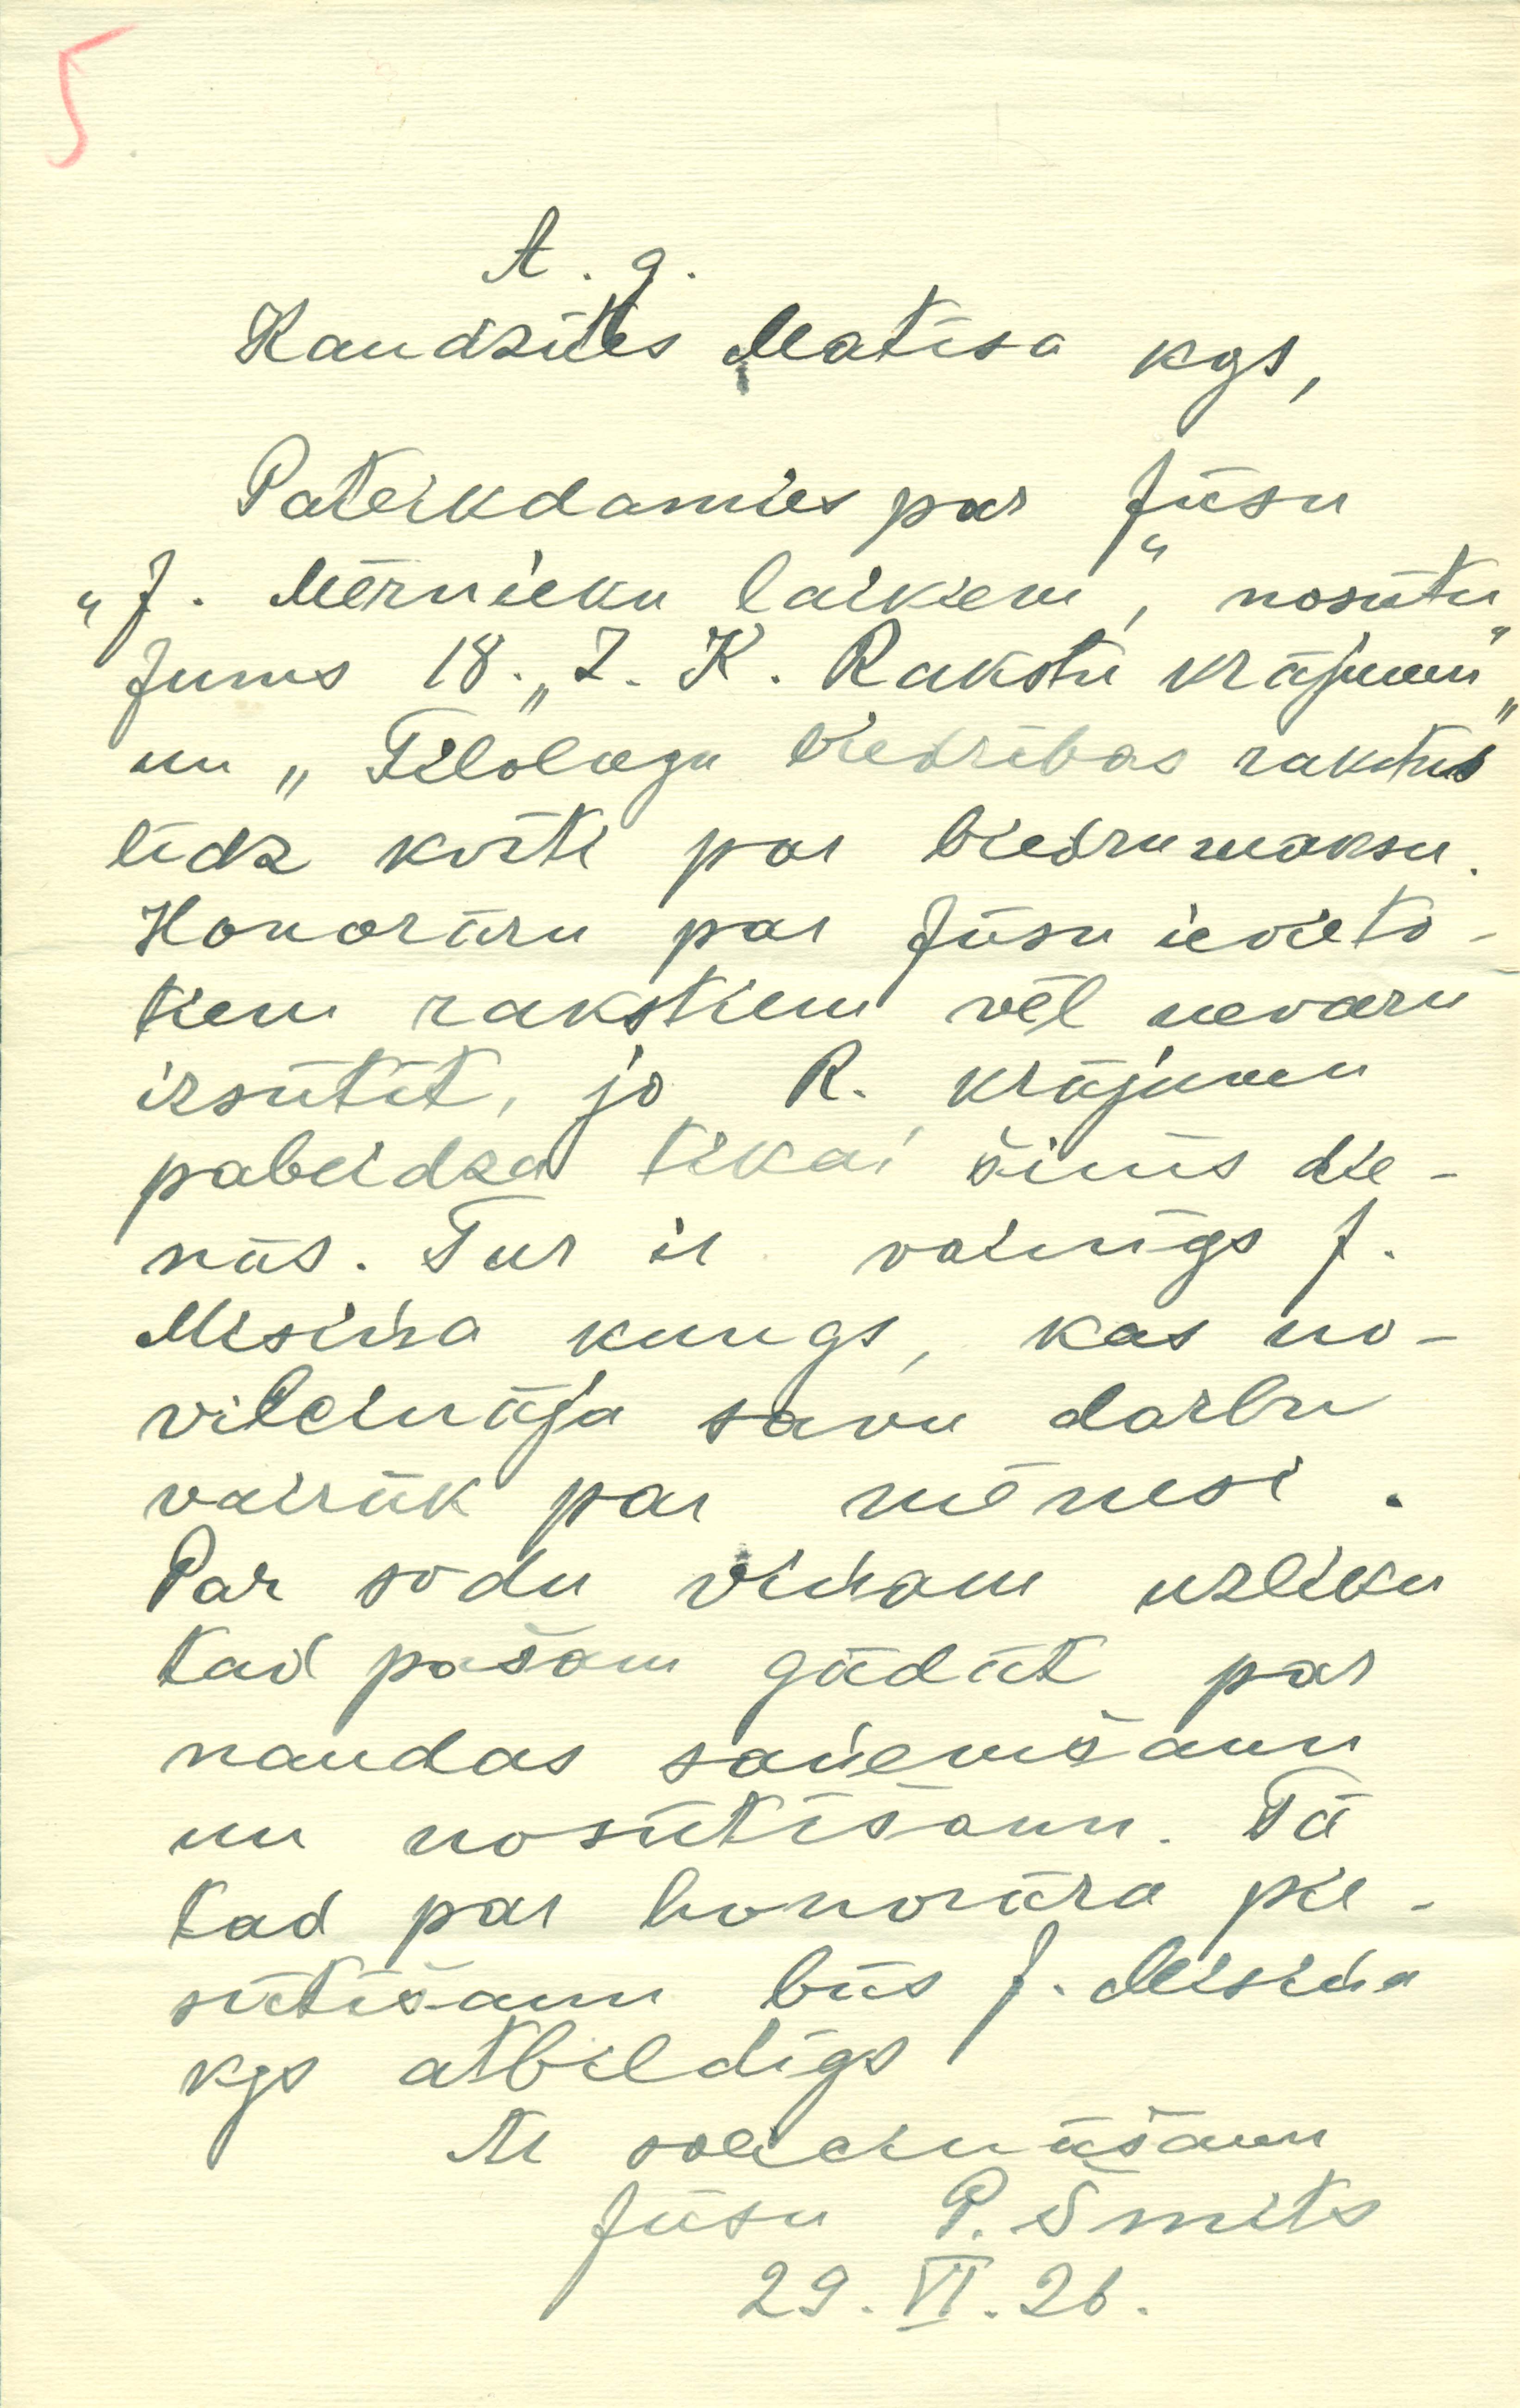 5
A. g.
Kaudzītes Matīsa kgs,
Pateikdamies par Jūsu
„J. Mērnieku laikiem“, nosūtu
Jums 18. „Z. K. Rakstu krājumu“
un „Filologu biedrības rakstus“
līdz kvīti par biedrumaksu.
Honorāru par Jūsu ievieto-
tiem rakstiem vēl nevaru
izsūtīt, jo R. krājumu
pabeidza tikai šinīs die-
nās. Tur ir vainīgs J.
Misiņa kungs, kas no-
vilcināja savu darbu
vairāk par mēnesi.
Par sodu viņam uzliku
tad pašam gādāt par
naudas saņemšanu
un nosūtīšanu. Tā
tad par honorāra pie-
sūtīšanu būs J. Misiņa
kgs atbildīgs
Ar sveicināšanu
Jūsu P. Šmits
29. VI. 26.